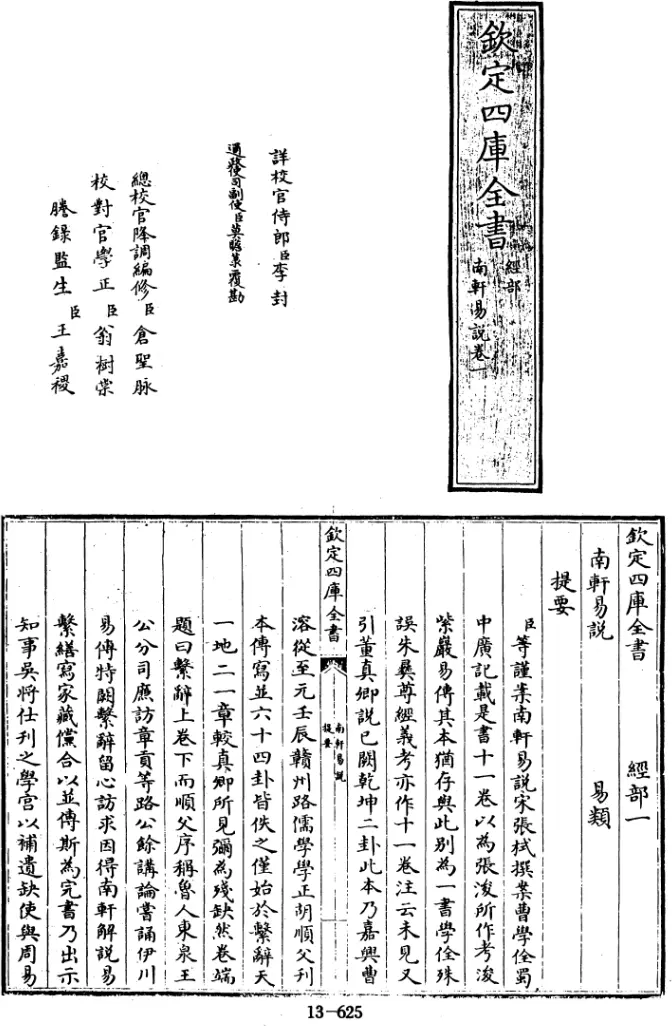 欽定四庫全書
經部
南軒易説卷一
詳校官侍郎臣李封
通政司副使臣莫瞻菉覆勘
總校官降調編修臣倉聖脉
校對官學正臣翁樹棠
謄錄監生臣王嘉禝
欽定四庫全書 經部一
南軒易説 易類
提要
臣等謹案南軒易説宋張栻撰案曹學佺蜀
中廣記載是書十一卷以為張浚所作考浚
紫巖易傳其本猶存與此别為一書學佺殊
誤朱彛尊經義考亦作十一卷注云未見又
引董真卿説已闕乾坤二卦此本乃嘉興曹
欽定四庫全書
南軒易説
提要
溶從至元壬辰贛州路儒學學正胡順父刊
本傳寫並六十四卦皆佚之僅始於繫辭天
一地二一章較真卿所見彌為殘缺然卷端
題曰繫辭上卷下而順父序稱魯人東泉王
公分司廉訪章貢等路公餘講論嘗誦伊川
易傳特闕繫辭留心訪求因得南軒解説易
繫繕寫家藏儻合以並傳斯為完書乃出示
知事吳將仕刊之學宫以補遺缺使與周易
13-625